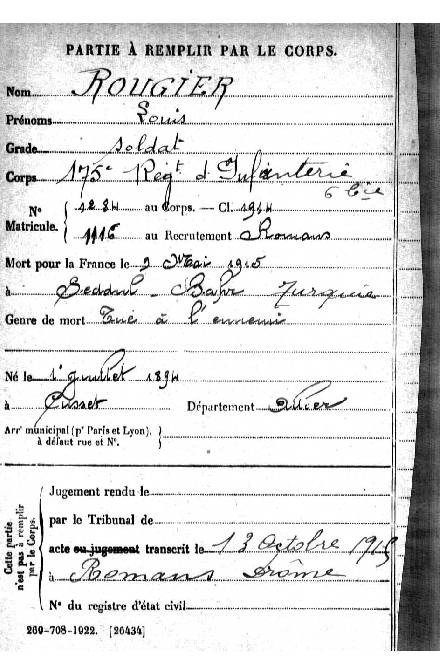 PARTIE À REMPLIR PAR LE CORPS.
Nom ROUGIER
Prénoms Louis
Grade soldat
Corps 175e Régt d'Infanterie
6 Cie
N° Matricule. 1234 au Corps. — Cl. 1914
1116 au Recrutement Romans
Mort pour la France le 2 Mai 1915
à Sedd ul Bahr Turquie
Genre de mort Tué à l'ennemi
Né le 1er Juillet 1894
à Cusset Département Allier
Arrt municipal (pr Paris et Lyon), à défaut rue et N°.
Cette partie n'est pas à remplir par le Corps.
Jugement rendu le
par le Tribunal de
acte ou jugement transcrit le 13 Octobre 1915
à Romans Drôme
N° du registre d'état civil
260-708-1922. [26434]